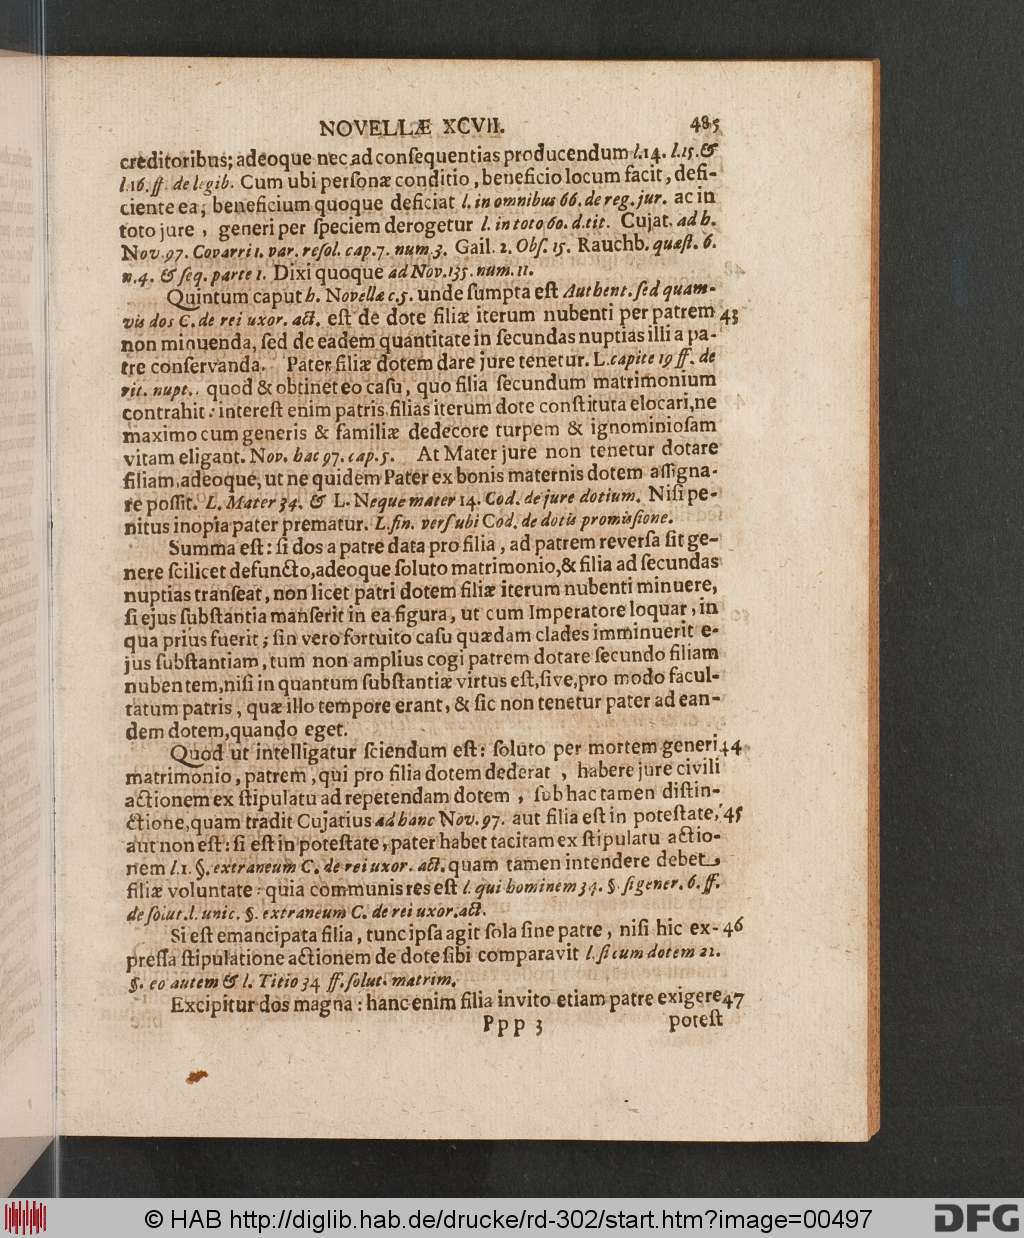 NOVELLÆ XCVII. 485
creditoribus; adeoque nec ad conſequentias producendum l.14. l.15. &
l.16. ff. de legib. Cum ubi perſonæ conditio, beneficio locum facit, defi-
ciente ea, beneficium quoque deficiat l. in omnibus 66. de reg. jur. ac in
toto jure, generi per ſpeciem derogetur l. in toto 60. d. tit. Cujat. ad h.
Nov. 97. Covarr. 1. var. reſol. cap. 7. num. 3. Gail. 2. Obſ. 15. Rauchb. quæſt. 6.
n. 4. & ſeq. parte 1. Dixi quoque ad Nov. 135. num. 11.
Quintum caput h. Novellæ c. 5. unde ſumpta eſt Authent. ſed quam-
vis dos C. de rei uxor. act. eſt de dote filiæ iterum nubenti per patrem 43
non minuenda, ſed de eadem quantitate in ſecundas nuptias illi a pa-
tre conſervanda. Pater filiæ dotem dare jure tenetur. L. capite 19 ff. de
rit. nupt. quod & obtinet eo caſu, quo filia ſecundum matrimonium
contrahit: intereſt enim patris filias iterum dote conſtituta elocari, ne
maximo cum generis & familiæ dedecore turpem & ignominioſam
vitam eligant. Nov. hac 97. cap. 5. At Mater jure non tenetur dotare
filiam, adeoque, ut ne quidem Pater ex bonis maternis dotem aſſigna-
re poſſit. L. Mater 34. & L. Neque mater 14. Cod. de jure dotium. Niſi pe-
nitus inopia pater prematur. L. fin. verſ ubi Cod. de dotis promiſſione.
Summa eſt: ſi dos a patre data pro filia, ad patrem reverſa ſit ge-
nere ſcilicet defuncto, adeoque ſoluto matrimonio, & filia ad ſecundas
nuptias tranſeat, non licet patri dotem filiæ iterum nubenti minuere,
ſi ejus ſubſtantia manſerit in ea figura, ut cum Imperatore loquar, in
qua prius fuerit; ſin vero fortuito caſu quædam clades imminuerit e-
jus ſubſtantiam, tum non amplius cogi patrem dotare ſecundo filiam
nubentem, niſi in quantum ſubſtantiæ virtus eſt, ſive, pro modo facul-
tatum patris, quæ illo tempore erant, & ſic non tenetur pater ad ean-
dem dotem, quando eget.
Quod ut intelligatur ſciendum eſt: ſoluto per mortem generi 44
matrimonio, patrem, qui pro filia dotem dederat, habere jure civili
actionem ex ſtipulatu ad repetendam dotem, ſub hac tamen diſtin-
ctione, quam tradit Cujatius ad hanc Nov. 97. aut filia eſt in poteſtate, 45
aut non eſt: ſi eſt in poteſtate, pater habet tacitam ex ſtipulatu actio-
nem l. 1. §. extraneum C. de rei uxor. act. quam tamen intendere debet,
filiæ voluntate: quia communis res eſt l. qui hominem 34. § ſi gener. 6. ff.
de ſolut. l. unic. §. extraneum C. de rei uxor. act.
Si eſt emancipata filia, tunc ipſa agit ſola ſine patre, niſi hic ex- 46
preſſa ſtipulatione actionem de dote ſibi comparavit l. ſi cum dotem 22.
§. eo autem & l. Titio 34 ff. ſolut. matrim.
Excipitur dos magna: hanc enim filia invito etiam patre exigere 47
Ppp 3 poteſt
© HAB http://diglib.hab.de/drucke/rd-302/start.htm?image=00497 DFG